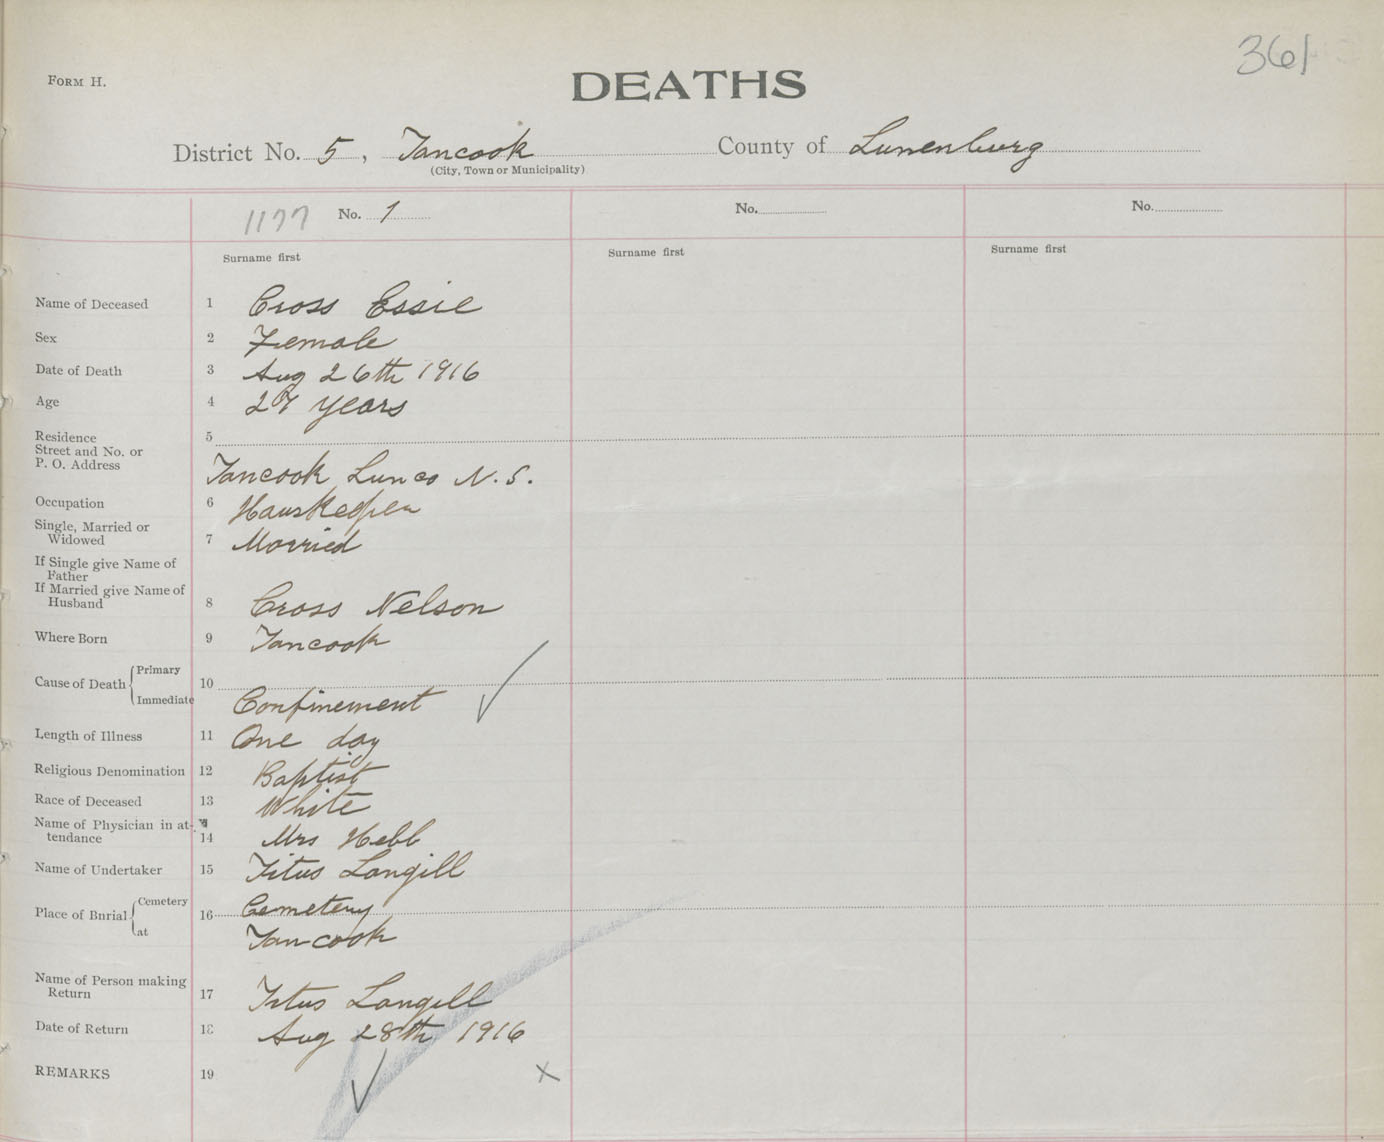 361
FORM H.
DEATHS
District No. 5, Tancook County of Lunenburg
(City, Town or Municipality)
1177 No. 1 No. No.
Surname first Surname first Surname first
Name of Deceased 1 Cross Essie
Sex 2 Female
Date of Death 3 Aug 26th 1916
Age 4 27 years
Residence 5
Street and No. or
P. O. Address
Tancook Lun co N. S.
Occupation 6 Hauskeeper
Single, Married or
Widowed 7 Married
If Single give Name of
Father
If Married give Name of
Husband 8 Cross Nelson
Where Born 9 Tancook
Cause of Death Primary 10
Immediate Confinement
Length of Illness 11 One day
Religious Denomination 12 Baptist
Race of Deceased 13 White
Name of Physician in at-
tendance 14 Mrs Hebb
Name of Undertaker 15 Titus Langill
Place of Burial Cemetery 16 Cemetery
at Tancook
Name of Person making
Return 17 Titus Langill
Date of Return 18 Aug 28th 1916
REMARKS 19 x